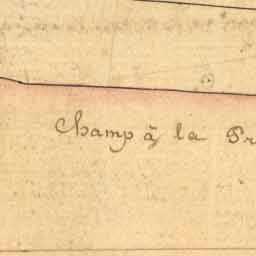 Champ à la